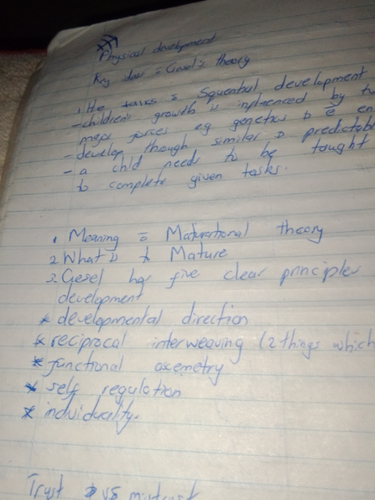 Physical development
Key idea = Gesel's theory
. He talks = Squential development
- children's growth is influenced by tw
major forces eg genetics & ē en
- develop though similar & predictable
- a child need to be taught
to complete given tasks.
1. Meaning = Maturational theory
2. What is to Mature
3. Gesel has five clear principles
development
* developmental direction
* reciprocal interweaving (2 things which
* functional asemetry
* self regulation
* individuality.
Trust vs mistrust